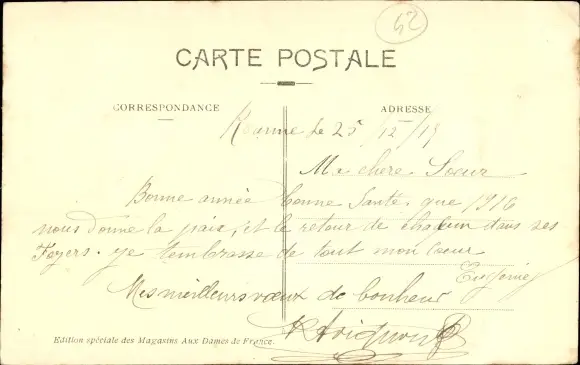 42
CARTE POSTALE
CORRESPONDANCE
ADRESSE
le 25/12/15
Ma chere Soeur
Bonne année bonne Santé, que 1916
nous donne la paix, et le retour de chacun dans ses
Foyers. je t'embrasse de tout mon Coeur
Eugénie
Mes meilleurs voeux de bonheur
Edition spéciale des Magasins Aux Dames de France.